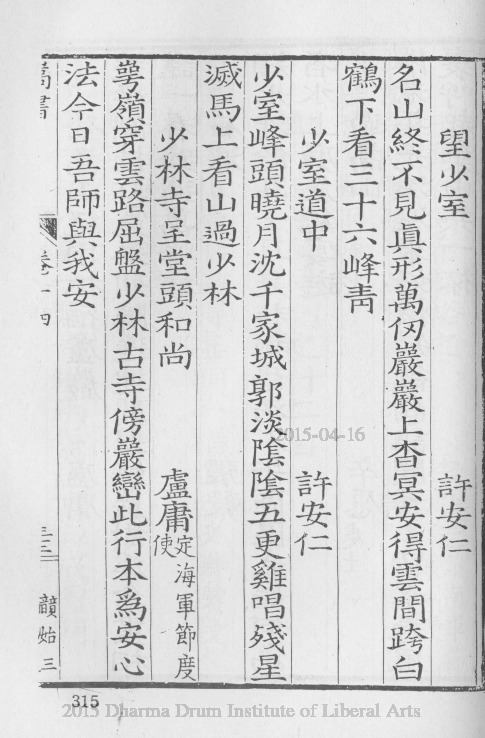 望少室 許安仁
名山終不見眞形萬仞巖巖上杳冥安得雲間跨白
鶴下看三十六峰青
少室道中 許安仁
少室峰頭曉月沈千家城郭淡陰陰五更雞唱殘星
滅馬上看山過少林
少林寺呈堂頭和尚 盧庸定海軍節度使
萼嶺穿雲路屈盤少林古寺傍巖巒此行本爲安心
法今日吾師與我安
嵩書 卷十四 三三 韻始三
315
2015-04-16
2015 Dharma Drum Institute of Liberal Arts